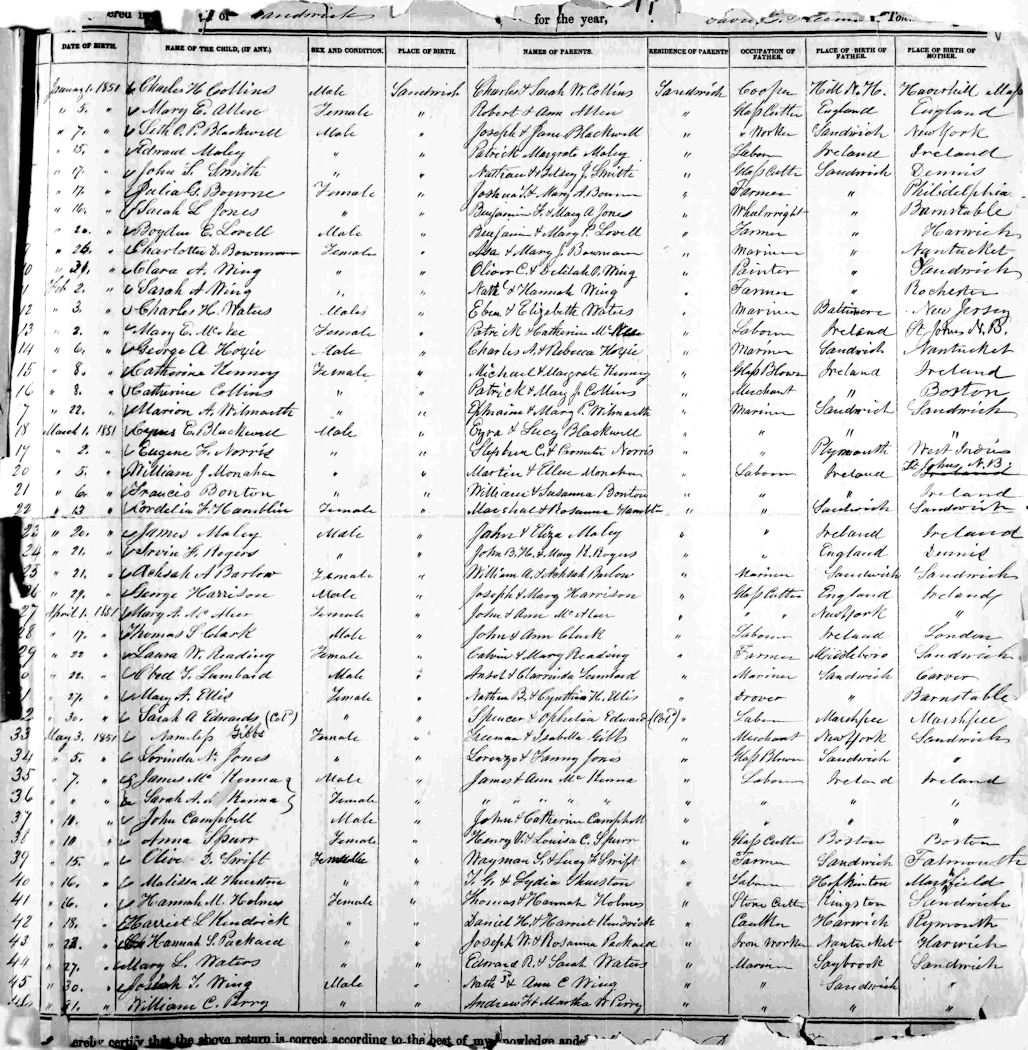 ered in of Sandwich for the year, Town
DATE OF BIRTH. NAME OF THE CHILD, (IF ANY.) SEX AND CONDITION. PLACE OF BIRTH. NAMES OF PARENTS. RESIDENCE OF PARENTS OCCUPATION OF FATHER. PLACE OF BIRTH OF FATHER. PLACE OF BIRTH OF MOTHER.
January 1. 1851 Charles H. Collins Male Sandwich Charles & Sarah W. Collins Sandwich Cooper Hill N. H. Haverhill Mass
" 5. " Mary E. Allen Female " Robert & Ann Allen " Glass Cutter England England
" 7. " Seth O. P. Blackwell Male " Joseph & Jane Blackwell " " Worker Sandwich New York
" 15. " Edward Maley " " Patrick Margrate Maley " Labour Ireland Ireland
" 17. " John F. Smith " " Nathan & Betsey J. Smith " Glass Cutte Sandwich Dennis
" 17. " Julia G. Bourne Female " Joshua T. & Mary A. Bourn " Farmer " Philidelphia
" 16. " Sarah L Jones " " Benjamin F. & Mary A Jones " Whealwright " Barnstable
" 20. " Boyden E. Lovell Male " Benjamin & Mary P. Lovell " Farmer " Harwich
9 " 26. " Charlotte D. Bowerman Female " Asa & Mary J. Bowman " Mariner " Nantucket
10 " 31. " Clara A. Wing " " Oliver C. & Delilah O. Wing " Painter " Sandwich
11 Feb 2. " Sarah A Wing " " Nath & Hannah Wing " Farmer " Rochester
12 " 3. " Charles H. Waters Male " Eben & Elizebeth Waters " Mariner Baltimore New Jersey
13 " 2. " Mary E. McKee Female " Patrick & Catherine McKee " Labour Ireland St Johns N. B.
14 " 6. " George A Hoxie Male " Charles A. & Rebecca Hoxie " Mariner Sandwich Nantucket
15 " 8. " Catherine Kenney Female " Michael & Margrate Kenney " Glass Blower Ireland Ireland
16 " 8. " Catherine Collins " " Patrick & Mary J Collins " Merchant " Boston
7 " 22. " Marion A. Wilmarth " " Ephraim & Mary P. Wilmarth " Mariner Sandwich Sandwich
18 March 1. 1851 Cyrus E. Blackwell Male " Ezra & Lucy Blackwell " " " "
19 " 2. " Eugene F. Norris " " Stephen C. & Norris " " Plymouth West Indies
20 " 5. " William J Monahan " " Martin & Ellen Monahan " Labour Ireland St Johns N. B.
21 " 6. " Francis Bonton " " William & Susanna Bonton " " " Ireland
22 " 13 " Cordelia F. Hamblin Female " Marshal & Rosanna Hamblin " " Sandwich Sandwich
23 " 20. " James Maley Male " John & Eliza Maley " " Ireland Ireland
24 " 21. " Irvin F. Rogers " " John B. H. & Mary K. Rogers " " England Dennis
25 " 21. " Achsah A Barlow Female " William A. & Achsah Barlow " Mariner Sandwich Sandwich
26 " 29. " George Harrison Male " Joseph & Mary Harrison " Glass Cutter England Ireland
27 April 1. 1851 Mary A. McAleer Female " John & Ann McAleer " " New York "
28 " 17. " Thomas S Clark Male " John & Ann Clark " Labour Ireland London
29 " 22 " Laura W. Reading Female " Calvin & Mary Reading " Farmer Middleboro Sandwich
0 " 22. " Obed T. Lumbard Male " Ansel & Clarrinda Lumbard " Mariner Sandwich Carver
1 " 27. " Mary A. Ellis Female " Nathan B. & Cynthia H. Ellis " Drover " Barnstable
2 " 30. " Sarah A Edwards (Col'd) " " Spencer & Ophelia Edwards (Col'd) " Labour Marshpee Marshpee
33 May 3. 1851 Nameless Gibbs Female " Freeman & Isabella Gibbs " Merchant New York Sandwich
34 " 5. " Lorinda N. Jones " " Lorenzo & Fanny Jones " Glass Blower Sandwich "
35 " 7. " James McKenna Male " James & Ann McKenna " Labour Ireland Ireland
36 " " " Sarah A. McKenna Female " " " " " " " " " "
37 " 10. " John Campbell Male " John & Catherine Campbell " " " "
38 " 10 " Anna Spurr Female " Henry Y. & Louisa C. Spurr " Glass Cutter Boston Boston
39 " 15. " Olive D. Swift Female " Wayman T. & Lucy F Swift " Farmer Sandwich Falmouth
40 " 16. " Malissa M Thurston " " T. G. & Lydia Thurston " Labour Hopkinton Marsfield
41 " 16. " Hannah M. Holmes Female " Thomas & Hannah Holmes " Stone Cutter Kingston Sandwich
42 " 18. " Harriet L Kendrick " " Daniel H. & Harriet Kendrick " Caulker Harwich Plymouth
43 " 22. " Hannah S. Packard " " Joseph W. & Rosanna Packard " Iron Worker Nantucket Harwich
44 " 27. " Mary L. Waters " " Edward R. & Sarah Waters " Mariner Saybrook Sandwich
45 " 30. " Josiah T. Wing Male " Nath & Ann C Wing " " Sandwich "
" 31. " William C. Perry " " Andrew F. & Martha W Perry " " " "
ereby certify that the above return is correct according to the best of my knowledge and